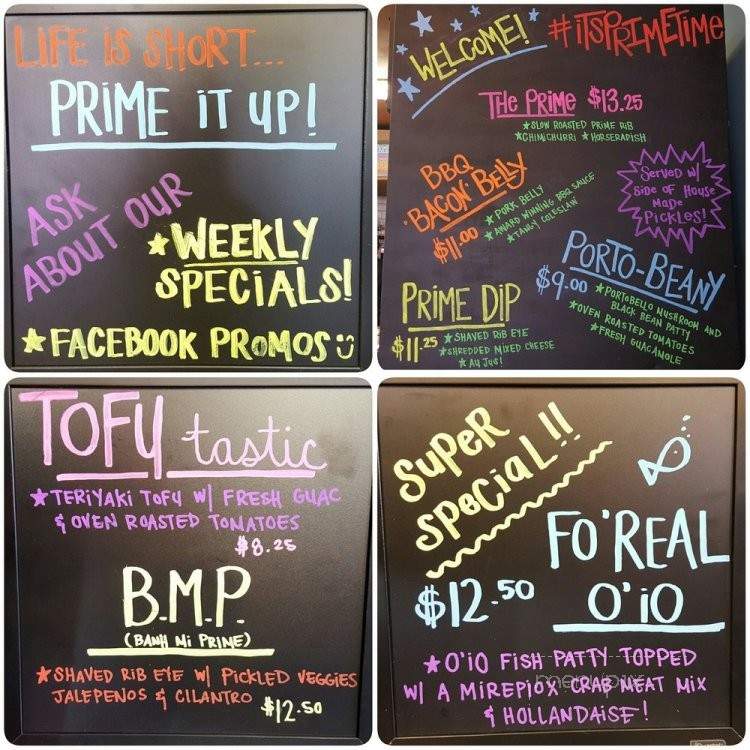 LIFE iS SHORT...
PRiME iT UP!
ASK
ABOUT OUR
★WEEKLY
SPECiALS!
★FACEBOOK PROMOS
WELCOME!
#iTSPRiMETiME
THE PRiME $13.25
★SLOW ROASTED PRIME RIB
★CHIMICHURRI ★HORSERADISH
BBQ
BACON BELLY
$11.00
★PORK BELLY
★AWARD WINNING BBQ SAUCE
★TANGY COLESLAW
SERVED W/
SiDE OF HOUSE
MADE
PiCKLES!
PORTO-BEANY
$9.00
★PORTOBELLO MUSHROOM AND
BLACK BEAN PATTY
★OVEN ROASTED TOMATOES
★FRESH GUACAMOLE
PRiME DIP
$11.25
★SHAVED RIB EYE
★SHREDDED MIXED CHEESE
★AU JUS!
TOFU tastic
★TERiYAKi TOFU W/ FRESH GUAC
& OVEN ROASTED TOMATOES
$8.25
B.M.P.
(BANH Mi PRiME)
★SHAVED RiB EYE W/ PiCKLED VEGGiES
JALEPENOS & CiLANTRO
$12.50
SUPER
SPECiAL!!
FO'REAL
O'iO
$12.50
★O'iO FiSH PATTY TOPPED
W/ A MiREPiOX CRAB MEAT MiX
& HOLLANDAiSE!